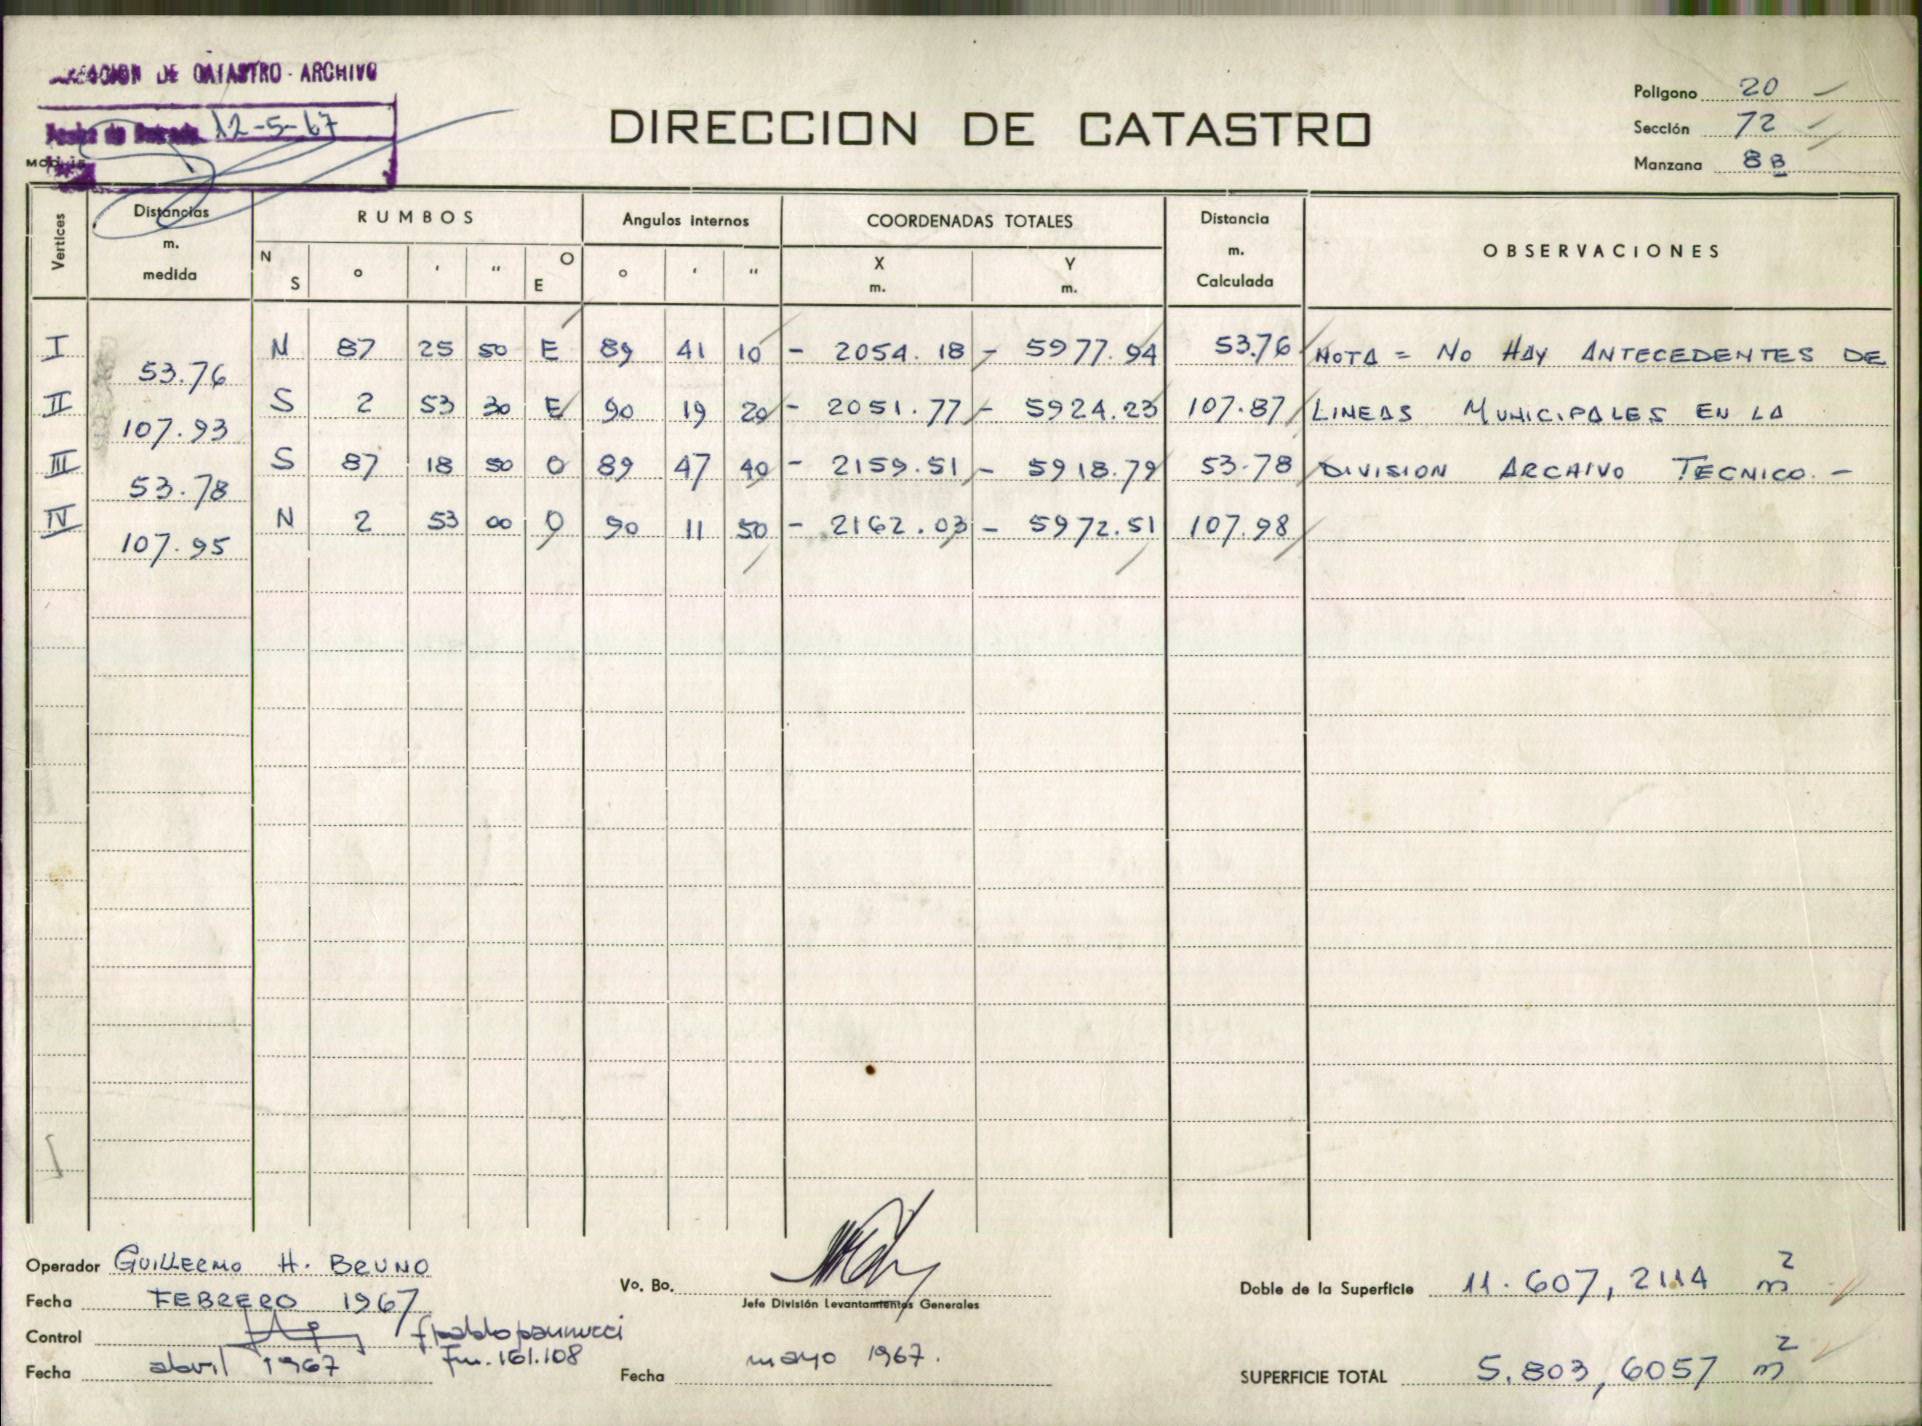 DIRECCION DE CATASTRO - ARCHIVO
Fecha de Entrada 12-5-67
DIRECCION DE CATASTRO
Polígono 20
Sección 72
Manzana 8B
Vertices
Distancias
m.
medida
RUMBOS
N S ° ' " O E
Angulos internos
° ' "
COORDENADAS TOTALES
X
m.
Y
m.
Distancia
m.
Calculada
OBSERVACIONES
I N 87 25 50 E 89 41 10 - 2054.18 - 5977.94 53.76 NOTA = NO HAY ANTECEDENTES DE
53.76
II S 2 53 30 E 90 19 20 - 2051.77 - 5924.23 107.87 LINEAS MUNICIPALES EN LA
107.93
III S 87 18 50 O 89 47 40 - 2159.51 - 5918.79 53.78 DIVISION ARCHIVO TECNICO. -
53.78
IV N 2 53 00 O 90 11 50 - 2162.03 - 5972.51 107.98
107.95
Operador GUILLERMO H. BRUNO
Fecha FEBRERO 1967
Control
Fecha abril 1967
Vo. Bo.
Jefe División Levantamientos Generales
Fecha mayo 1967.
Doble de la Superficie 11.607,2114 m2
SUPERFICIE TOTAL 5.803,6057 m2